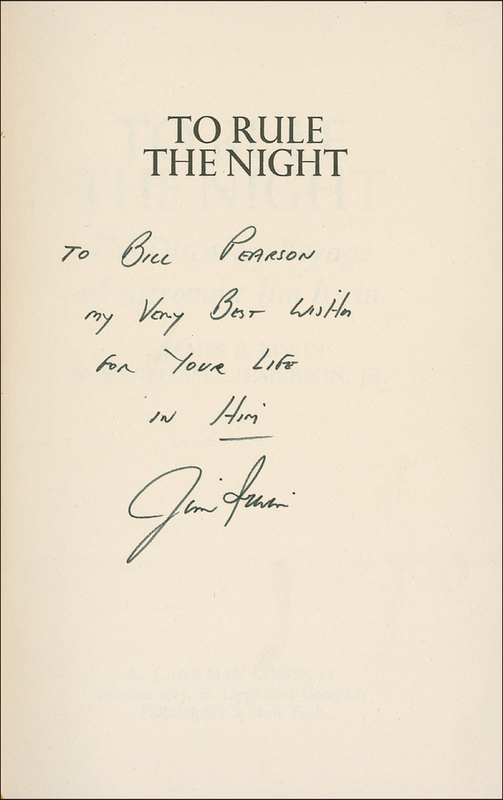 TO RULE
THE NIGHT
TO BILL PEARSON
MY VERY BEST WISHES
FOR YOUR LIFE
IN HIM
Jim Irwin